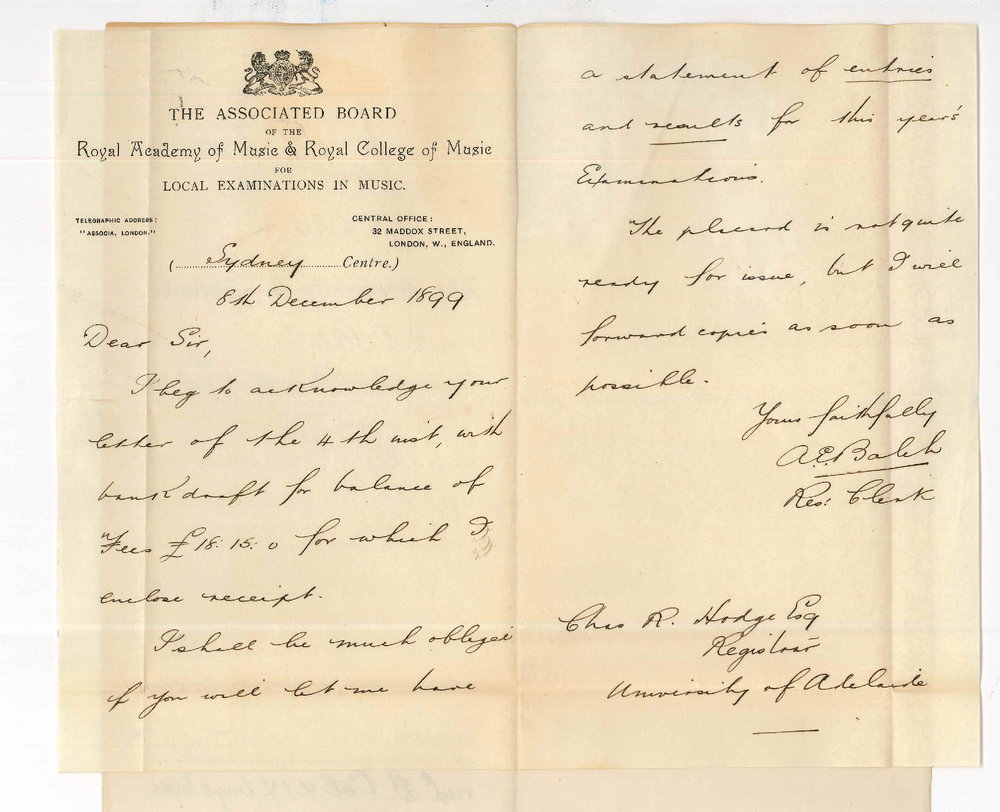 THE ASSOCIATED BOARD
OF THE
Royal Academy of Music & Royal College of Music
FOR
LOCAL EXAMINATIONS IN MUSIC.
TELEGRAPHIC ADDRESS:
"ASSOCIA, LONDON."
CENTRAL OFFICE:
32 MADDOX STREET,
LONDON, W., ENGLAND.
(Sydney Centre.)
8th December 1899
Dear Sir,
I beg to acknowledge your
letter of the 4th inst, with
bank draft for balance of
Fees £18:15:0 for which I
enclose receipt.
I shall be much obliged
if you will let me have
a statement of entries
and results for this year's
Examinations.
The placard is not quite
ready for issue, but I will
forward copies as soon as
possible.
Yours faithfully
Res: Clerk
Chas R. Hodge Esq
Registrar
University of Adelaide